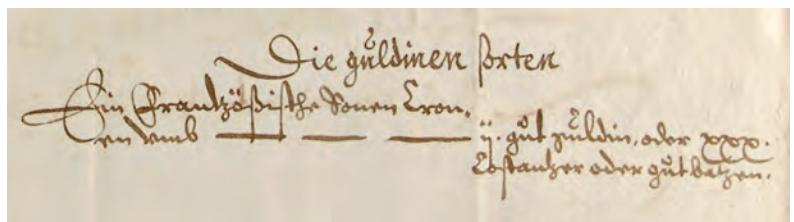 Die guͦldinen sorten
Ein Frantzößische Sonen Cron,
en vmb
ij. guͦt guldin, oder xxx.
Costantzer oder guͦt batzen.